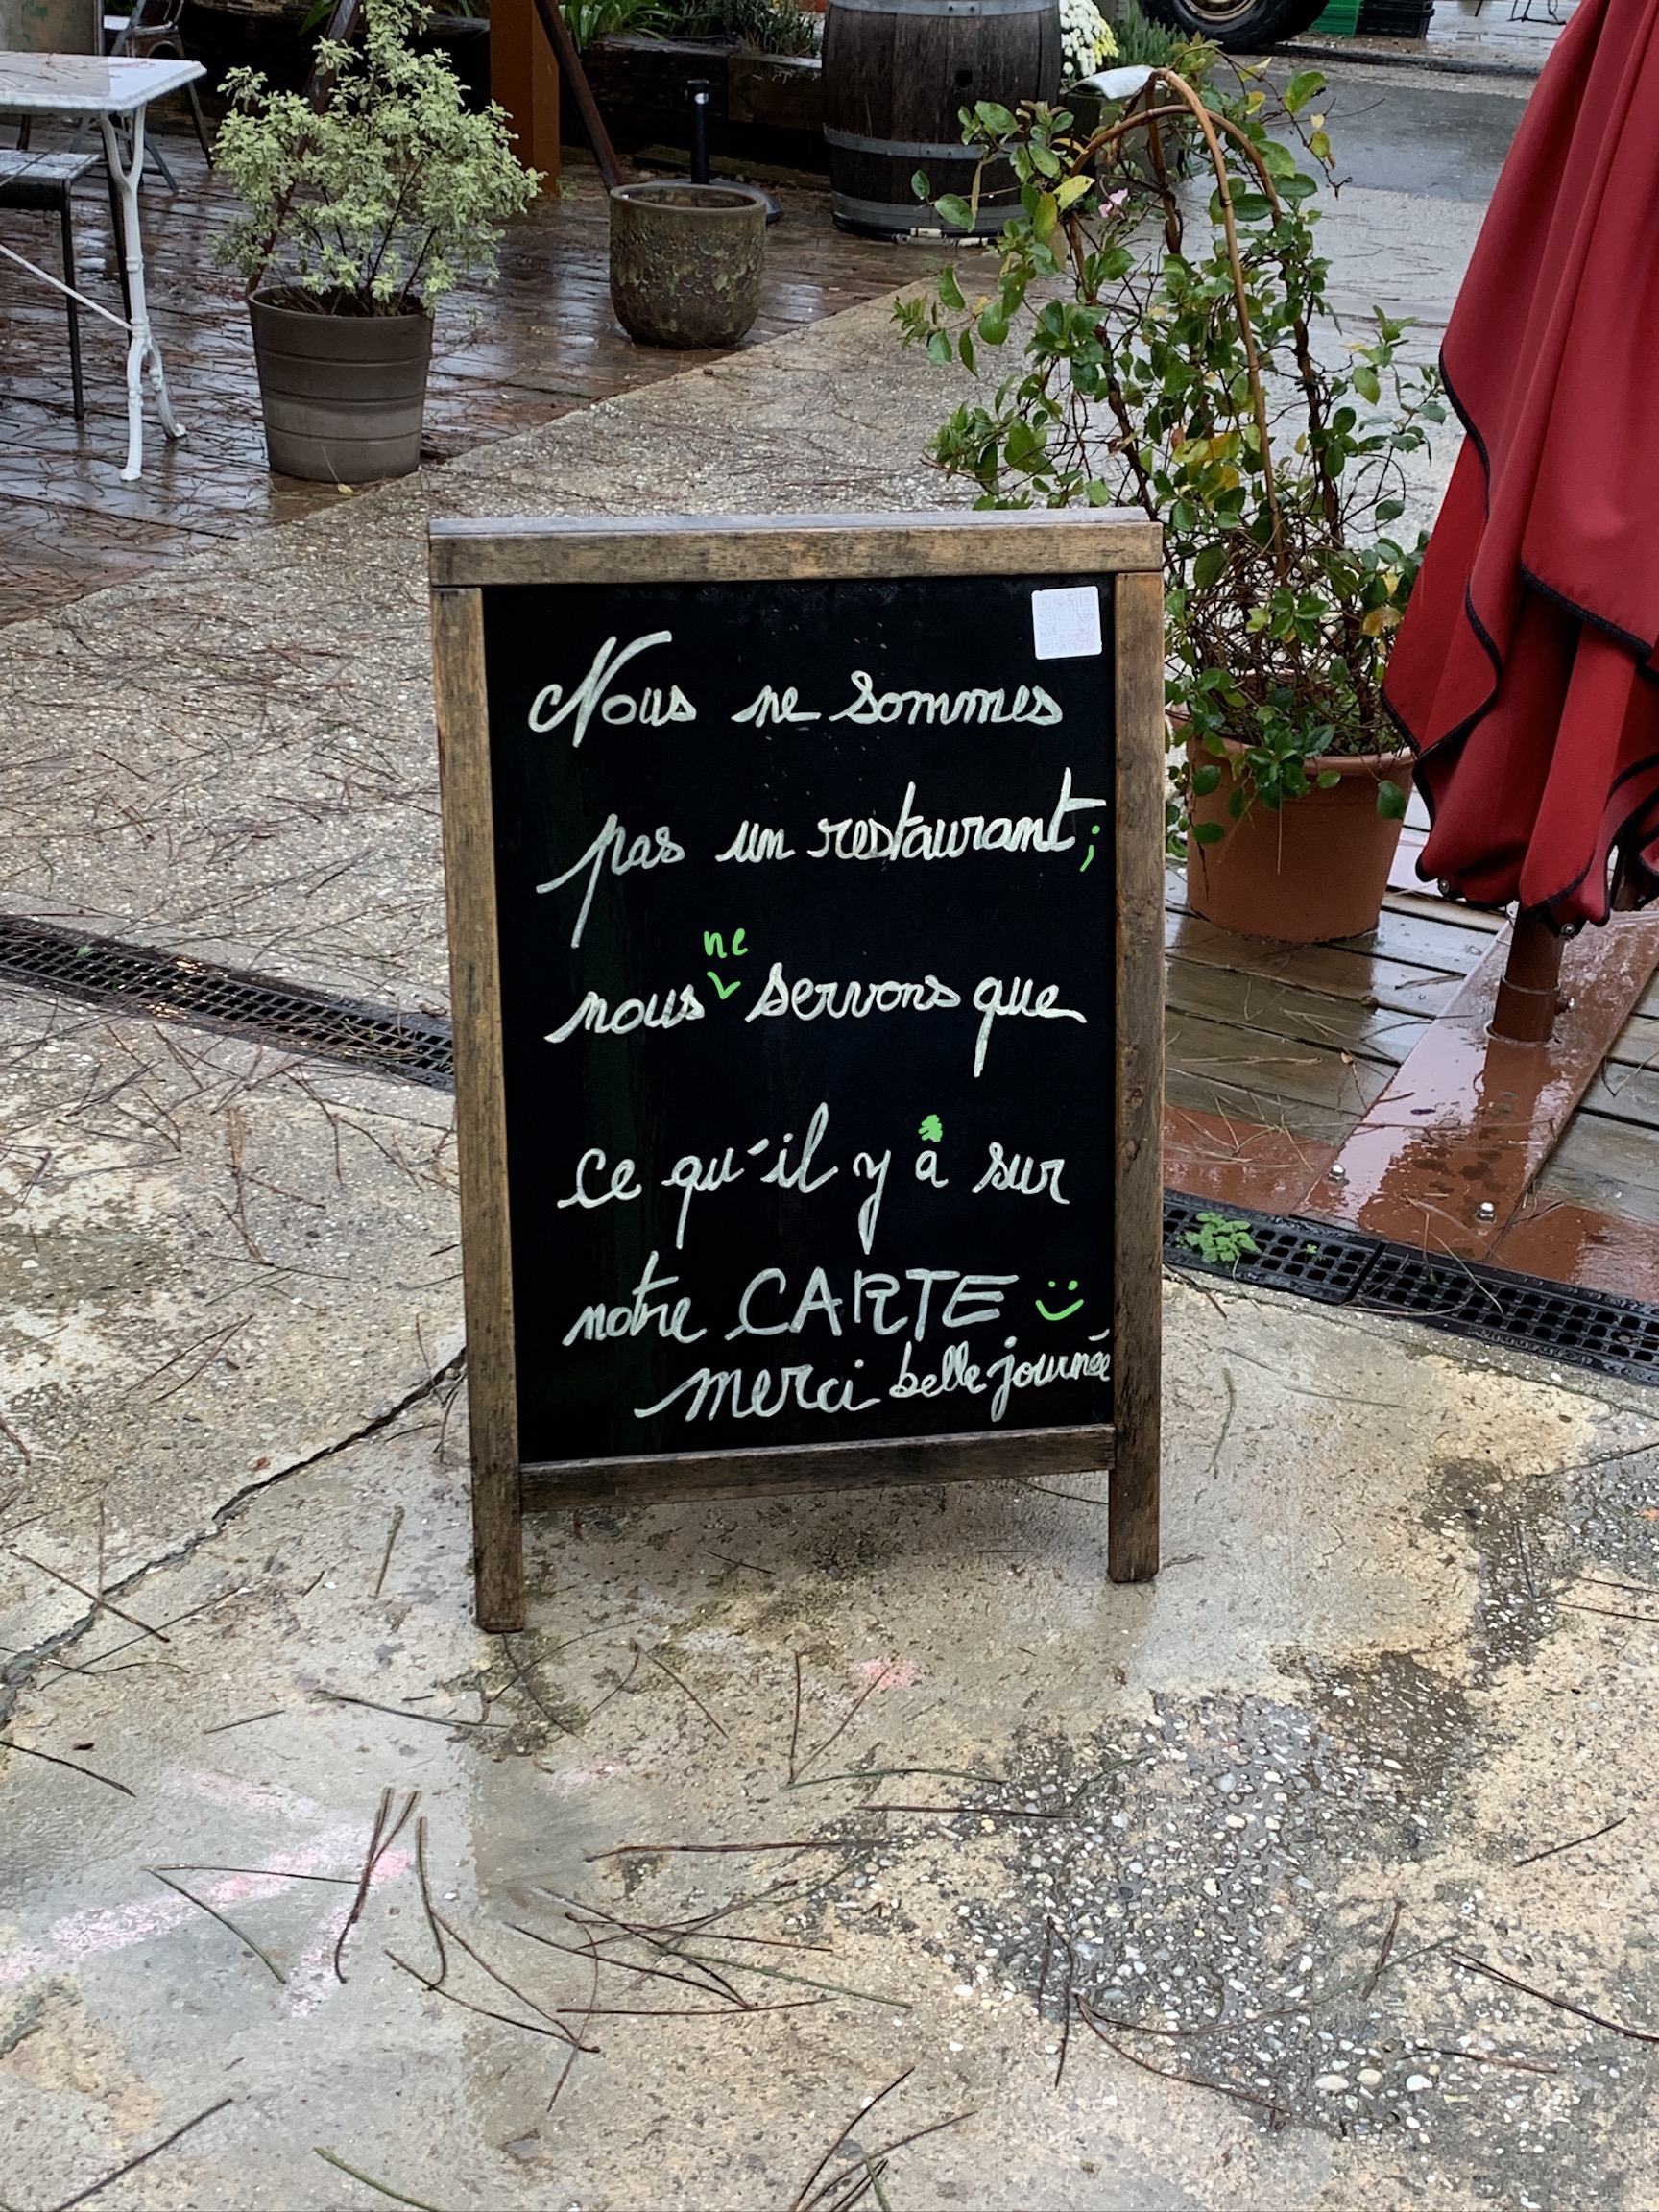 Nous ne sommes
pas un restaurant;
nous ne servons que
ce qu'il y a sur
notre CARTE :)
merci belle journée